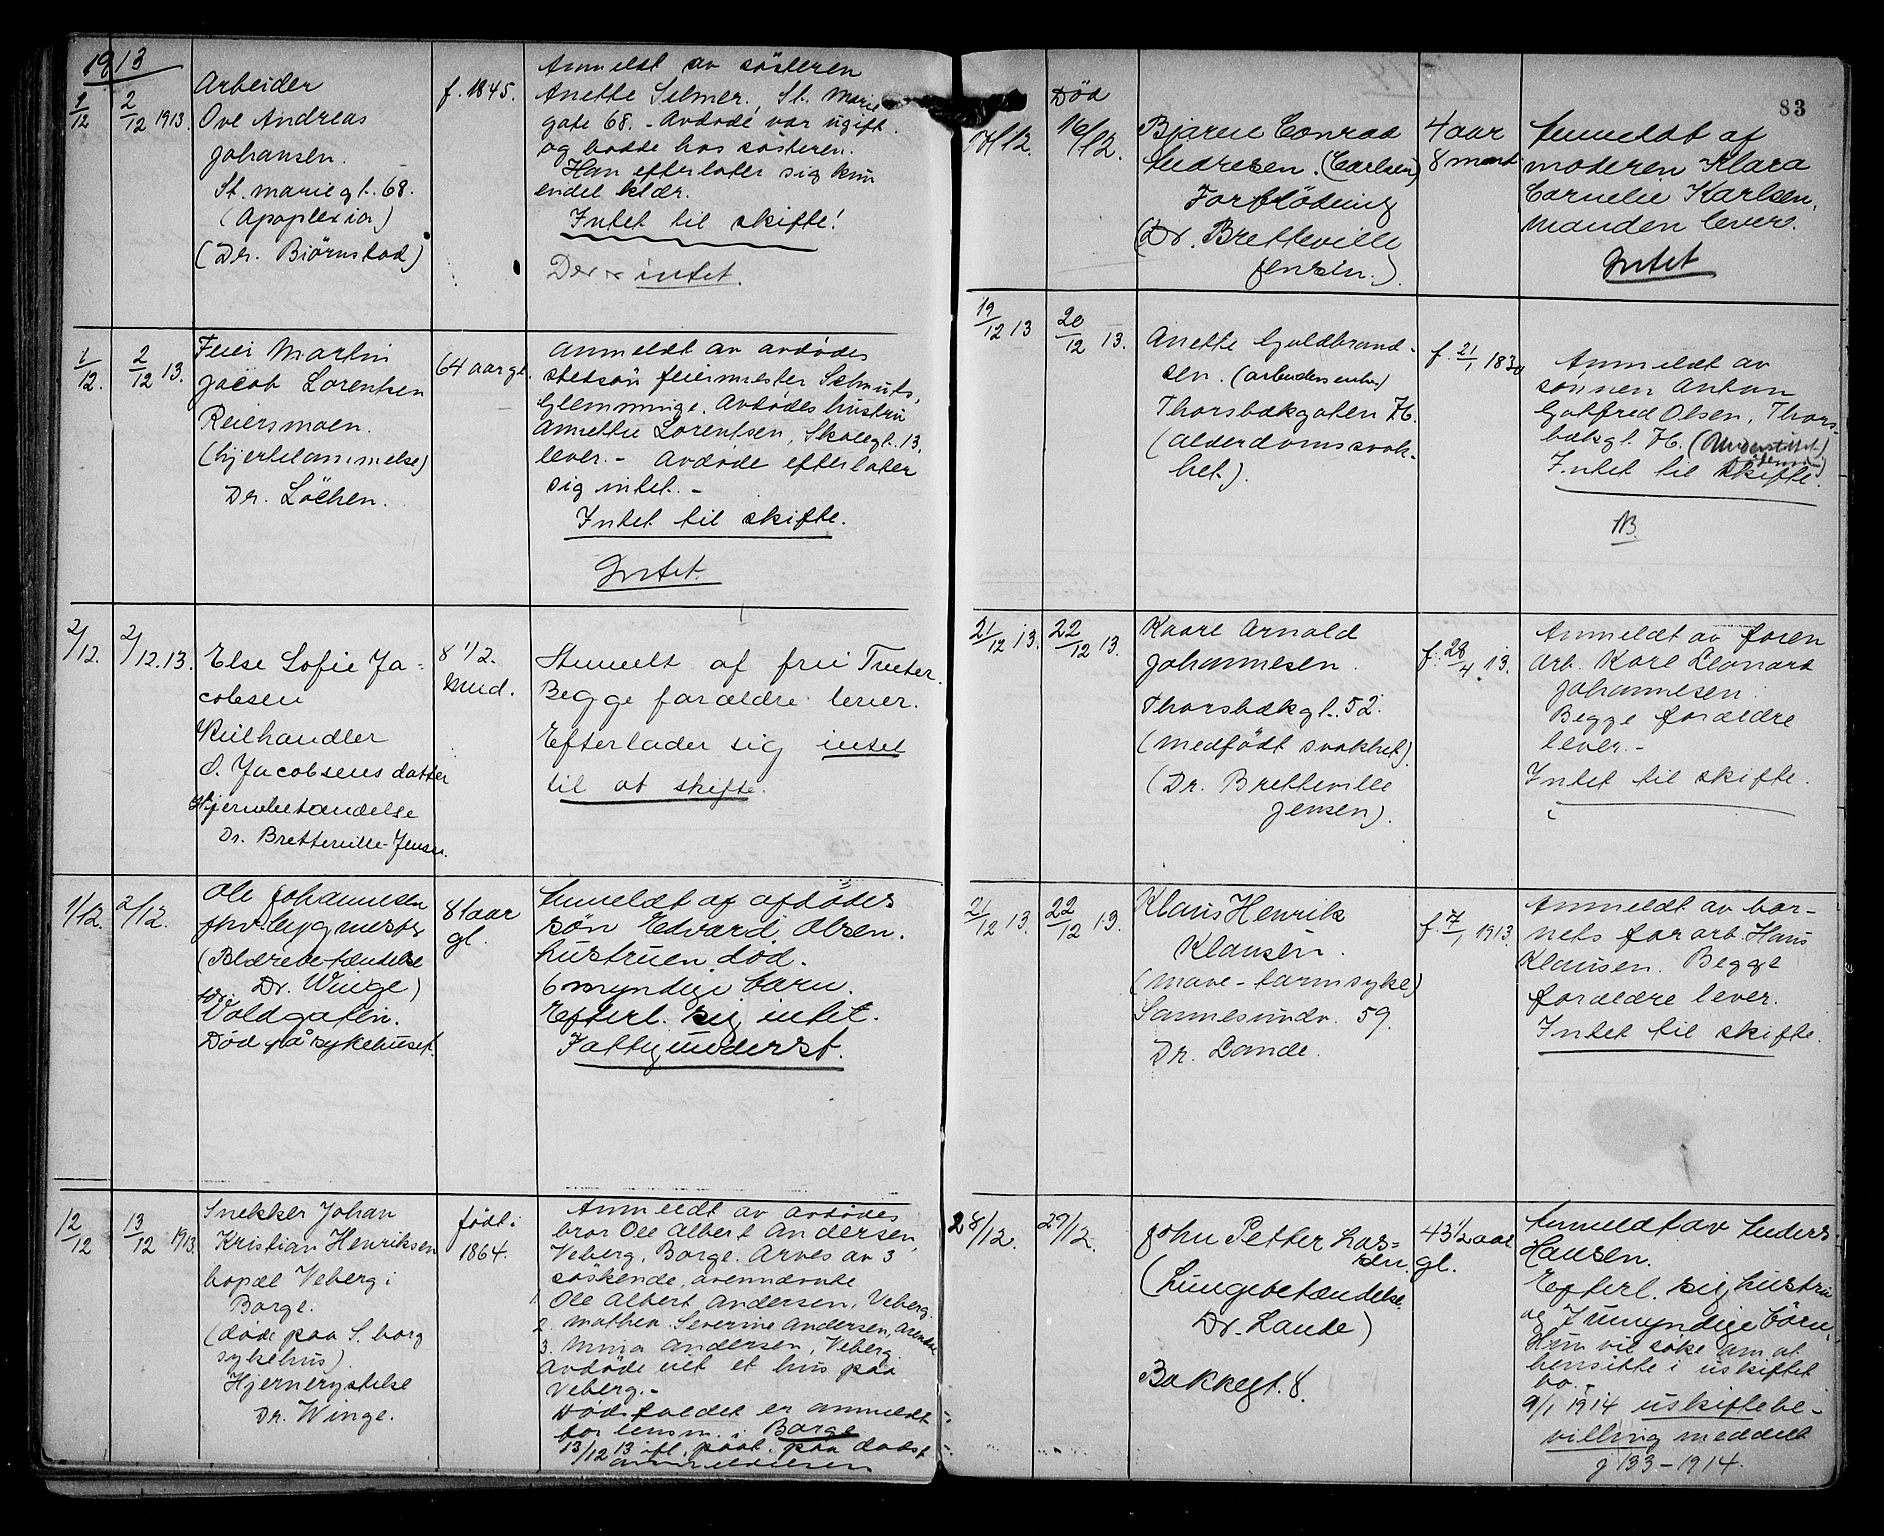 1913
1/12 2/12 1913.
Arbeider
Ove Andreas
Johansen.
St. mariegt. 68.
(Apoplexia)
(Dr. Biørnstad)
f. 1845.
Anmeldt av søsteren
Anette Selmer., St. Marie
gate 68. - Avdøde var ugift.
og bodde hos søsteren.
Han efterlater sig kun
endel klær.
Intet til skifte!
intet.
1/12. 2/12 13.
Feier Martin
Jacob Lorentsen
Reiersmoen.
(hjertelammelse)
Dr. Løchen.
64 aar gl.
Anmeldt av avdødes
stedsøn feiermester
Glemminge. Avdødes hustru
Annette Lorentsen, Skolegt. 13,
lever. - Avdøde efterlater
sig intet. -
Intet til skifte.
Intet.
2/12. 2/12. 13.
Else Sofie Ja-
cobsen
Kulhandler
O. Jacobsens datter
Hjernebetændelse
Dr. Bretteville-Jensen.
8 1/2
mnd.
Anmelt af fru
Begge forældre lever.
Efterlader sig intet
til at skifte.
1/12. 2/12.
Ole Johannesen
fhv. bygmester
(Blærebetændelse
Dr. Winge)
Voldgaten.
Død på sykehuset.
81 aar
gl.
Anmeldt af afdødes
søn Edvard Olsen.
Hustruen død.
6 myndige barn.
Efterl. sig intet.
Fattigunderst.
12/12 13/12 1913
Snekker Johan
Kristian Henriksen
bopæl Veberg i
Borge.
(døde paa S.borg
sykehus).
Hjernerystelse
Dr. Winge.
født i
1864.
Anmeldt av avdødes
bror Ole Albert Andersen,
Veberg, Borge. Arves av 3
søskende, ovennævnte
1. Ole Albert Andersen, Veberg.
2. Mathea Severine Andersen,
3. Mina Andersen, Veberg.
Avdøde eiet et hus paa
Veberg. -
Dødsfaldet er anmeldt
for lensm. i Borge
13/12 13 paa dødsf.
anmeldelsen
83
Død
17/12. 16/12.
Bjarne Conrad
Andresen. (Carlsen)
Forblødning
(Dr. Bretteville
Jensen.)
4 aar
8 mnd.
Anmeldt af
moderen Klara
Cornelie Karlsen.
Manden lever.
Intet
19/12 13 20/12 13.
Anette Guldbrand-
sen. (arbeidersenke)
Thorsbækgaten 76.
(alderdomssvak-
het).
f. 21/1 1830
Anmeldt av
sønnen Anton
Gotfred Olsen, Thors-
bækgt. 76.
Intet til skifte.
NB.
21/12 13. 22/12 13.
Kaare Arnold
Johannesen.
Thorsbækgt. 52.
(medfødt svakhet).
(Dr. Bretteville
Jensen).
f. 28/4 13.
Anmeldt av faren
arb. Karl Leonard
Johannesen.
Begge forældre
lever. -
Intet til skifte.
21/12 13. 22/12 13.
Klaus Henrik
Klausen.
(mave-tarmsyke)
Sannesundv. 59.
Dr. Lande.
f. 7/1 1913.
Anmeldt av bar-
nets far arb. Hans
Klausen. Begge
forældre lever.
Intet til skifte.
28/12. 29/12.
John Petter Lar-
sen.
(Lungebetændelse.
Dr. Lande)
Bakkegt. 8.
43 1/2 aar
gl.
Anmeldt av Anders
Hansen.
Efterl. sig hustru
og 7 umyndige børn.
Hun vil søke om at
hensitte i uskiftet
bo. -
9/1 1914 uskiftebe-
villing meddelt
j 133-1914.